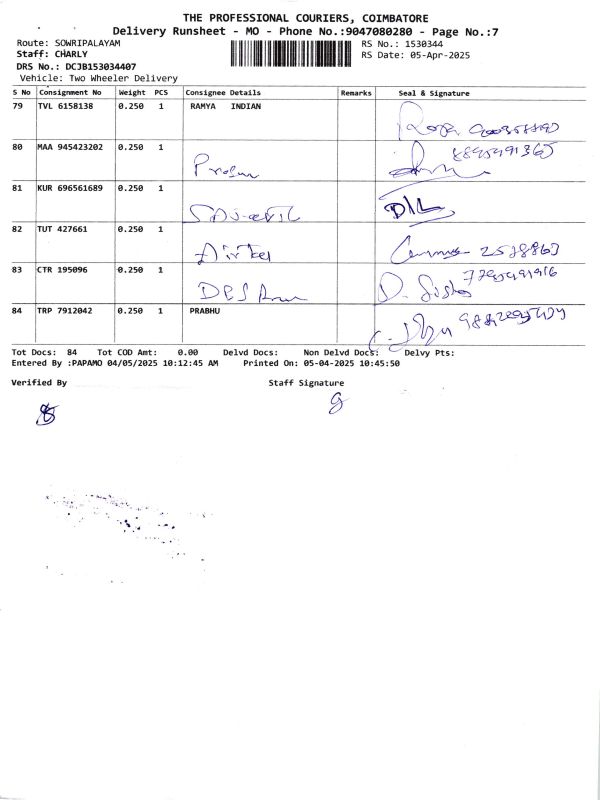 THE PROFESSIONAL COURIERS, COIMBATORE
Delivery Runsheet - MO - Phone No.:9047080280 - Page No.:7
Route: SOWRIPALAYAM
Staff: CHARLY
DRS No.: DCJB153034407
Vehicle: Two Wheeler Delivery
RS No.: 1530344
RS Date: 05-Apr-2025
S No Consignment No Weight PCS Consignee Details Remarks Seal & Signature
79 TVL 6158138 0.250 1 RAMYA INDIAN
80 MAA 945423202 0.250 1
81 KUR 696561689 0.250 1
82 TUT 427661 0.250 1 Airtel
83 CTR 195096 0.250 1 DBS
84 TRP 7912042 0.250 1 PRABHU
Tot Docs: 84 Tot COD Amt: 0.00 Delvd Docs: Non Delvd Docs: Delvy Pts:
Entered By :PAPAMO 04/05/2025 10:12:45 AM Printed On: 05-04-2025 10:45:50
Verified By Staff Signature